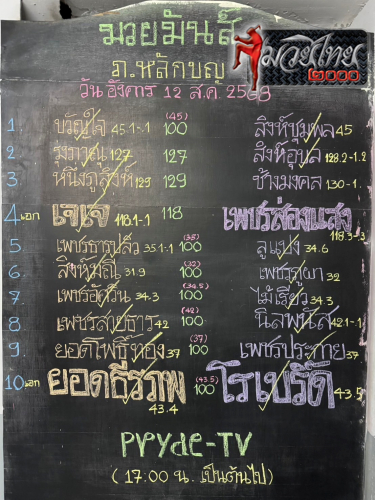 มวยมันส์
มวยไทย
๒๐๐๐
ภ.หลักบุญ
วัน อังคาร 12 ส.ค. 2568
1. ขวัญใจ 45.1-.1 (45) 100 สิงห์ชุมพล 45
2. 127 127 สิงห์อุบล 128.2-1.2
3 หนึ่งภูสิงห์ 129 129 ช้างมงคล 130-1.
4 เอก เจเจ 118.1-.1 118 เพชรส่องแสง 118.3-.3
5. เพชรธารปลิว 35.1-.1 (35) 100 ลูแปง 34.6
6 สิงห์มณี 31.9 (32) 100 เพชรภูผา 32
7 เพชรอัศวิน 34.3 (34.5) 100 ไม้เรียว 34.3
8 เพชรสายธาร 42 (42) 100 นิลพนัส 42.1-.1
9. ยอดโพธิ์ทอง 37 (37) 100 เพชรประกาย 37
10 เอก ยอดธีรภพ 43.4 (43.5) 100 โรเบิร์ต 43.5
PPYde-TV
(17:00 น. เป็นต้นไป)